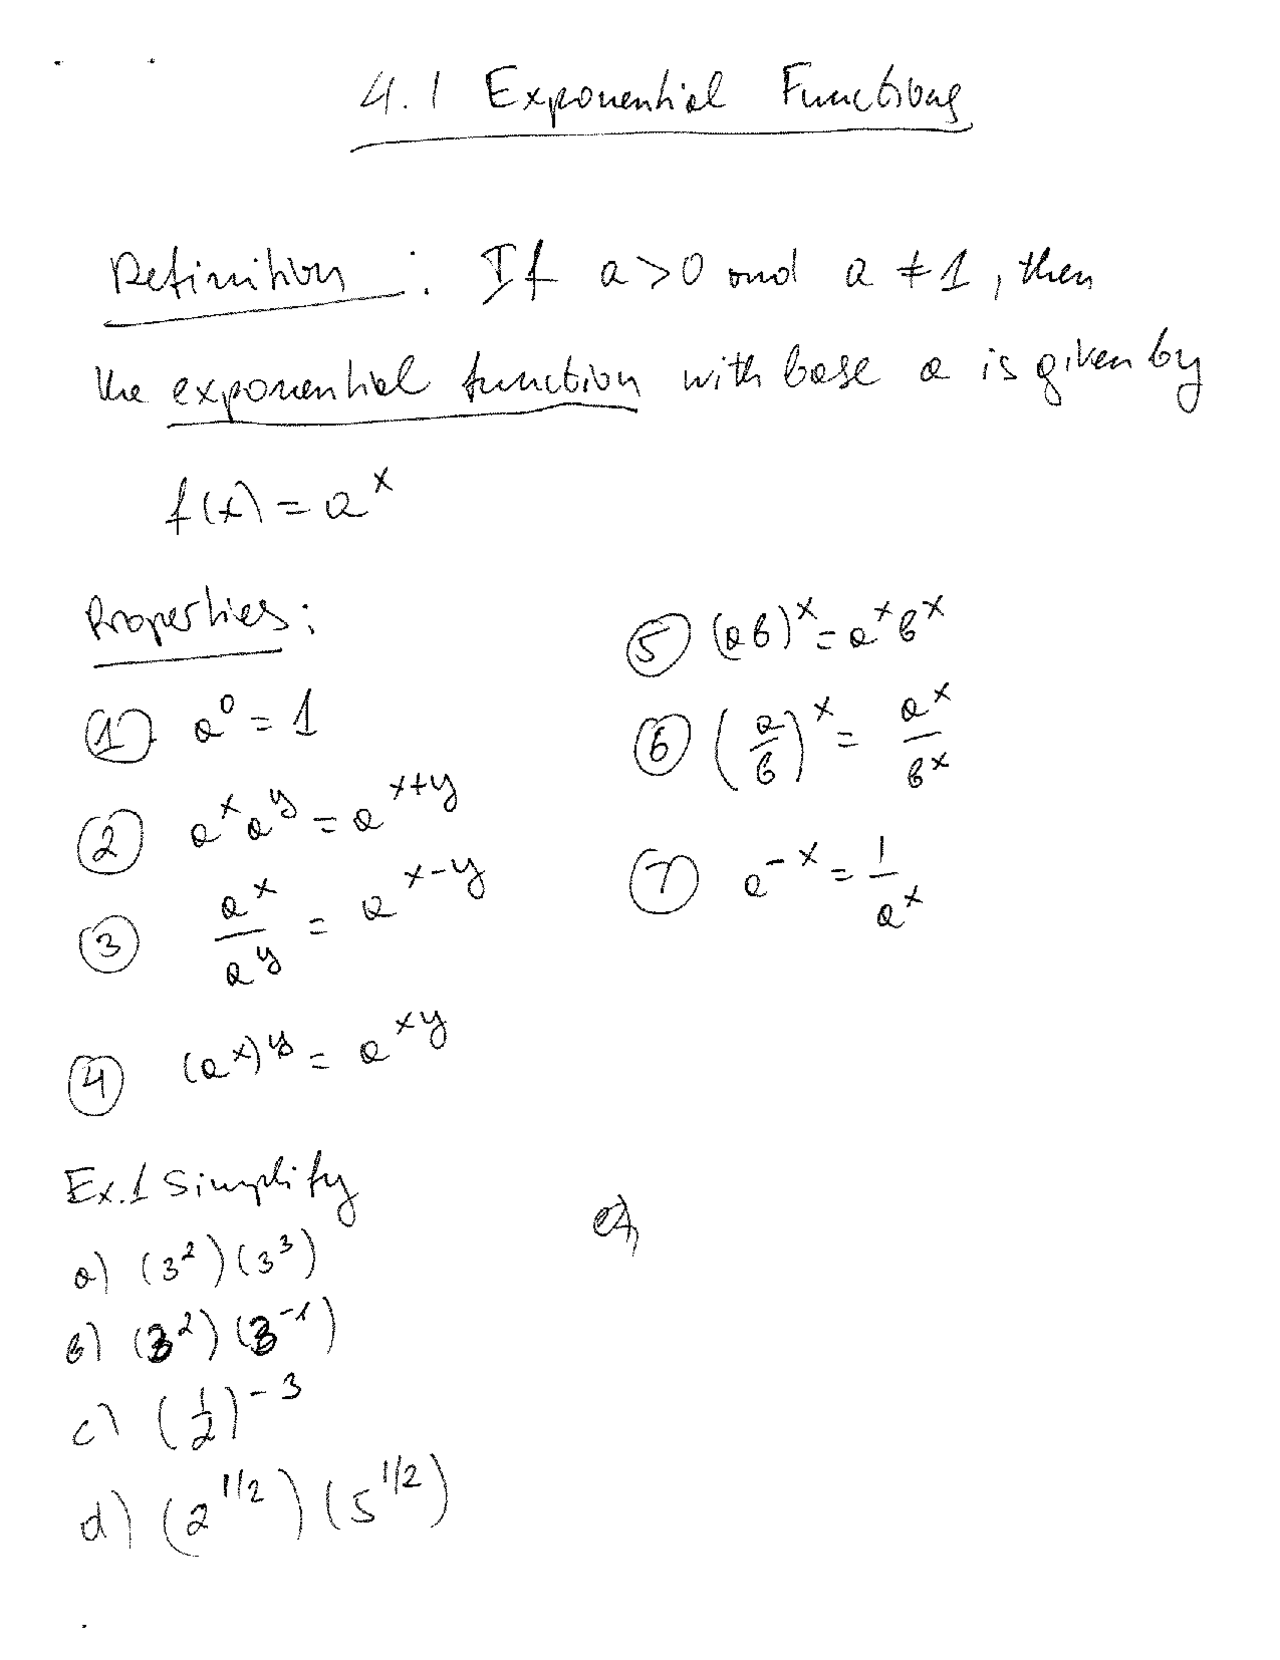 4.1 Exponential Functions
Definition: If a>0 and a ≠ 1, then
the exponential function with base a is given by
f(x) = a^x
Properties:
① a^0 = 1
② a^x a^y = a^(x+y)
③ a^x / a^y = a^(x-y)
④ (a^x)^y = a^(xy)
⑤ (ab)^x = a^x b^x
⑥ (a/b)^x = a^x / b^x
⑦ a^(-x) = 1 / a^x
Ex.1 Simplify
a) (3^2)(3^3)
b) (3^2)(3^-1)
c) (1/2)^-3
d) (2^1/2)(5^1/2)